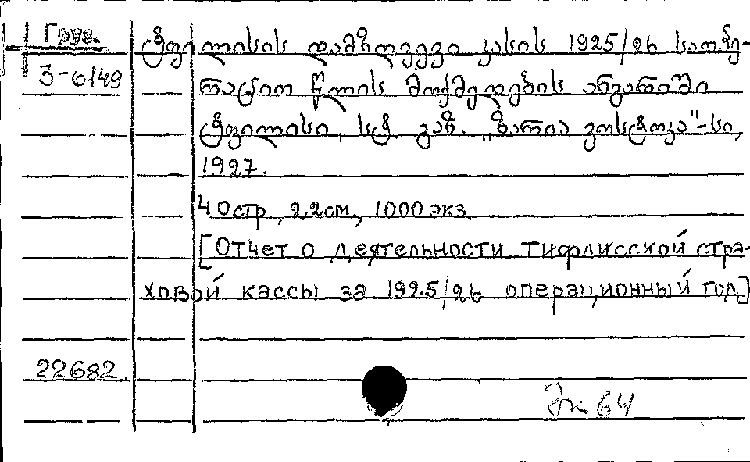 Груз. ტფილისის დამზღვევი კასის 1925/26 საოპე-
3-6149 რაციო წლის მოქმედების ანგარიში
ტფილისი, სტ. გაზ. „ზარია ვოსტოკა"-სი,
1927.
40 стр, 22см, 1000 экз
[Отчет о деятельности тифлисской стра-
ховой кассы за 1925/26 операционный год]
22682
64